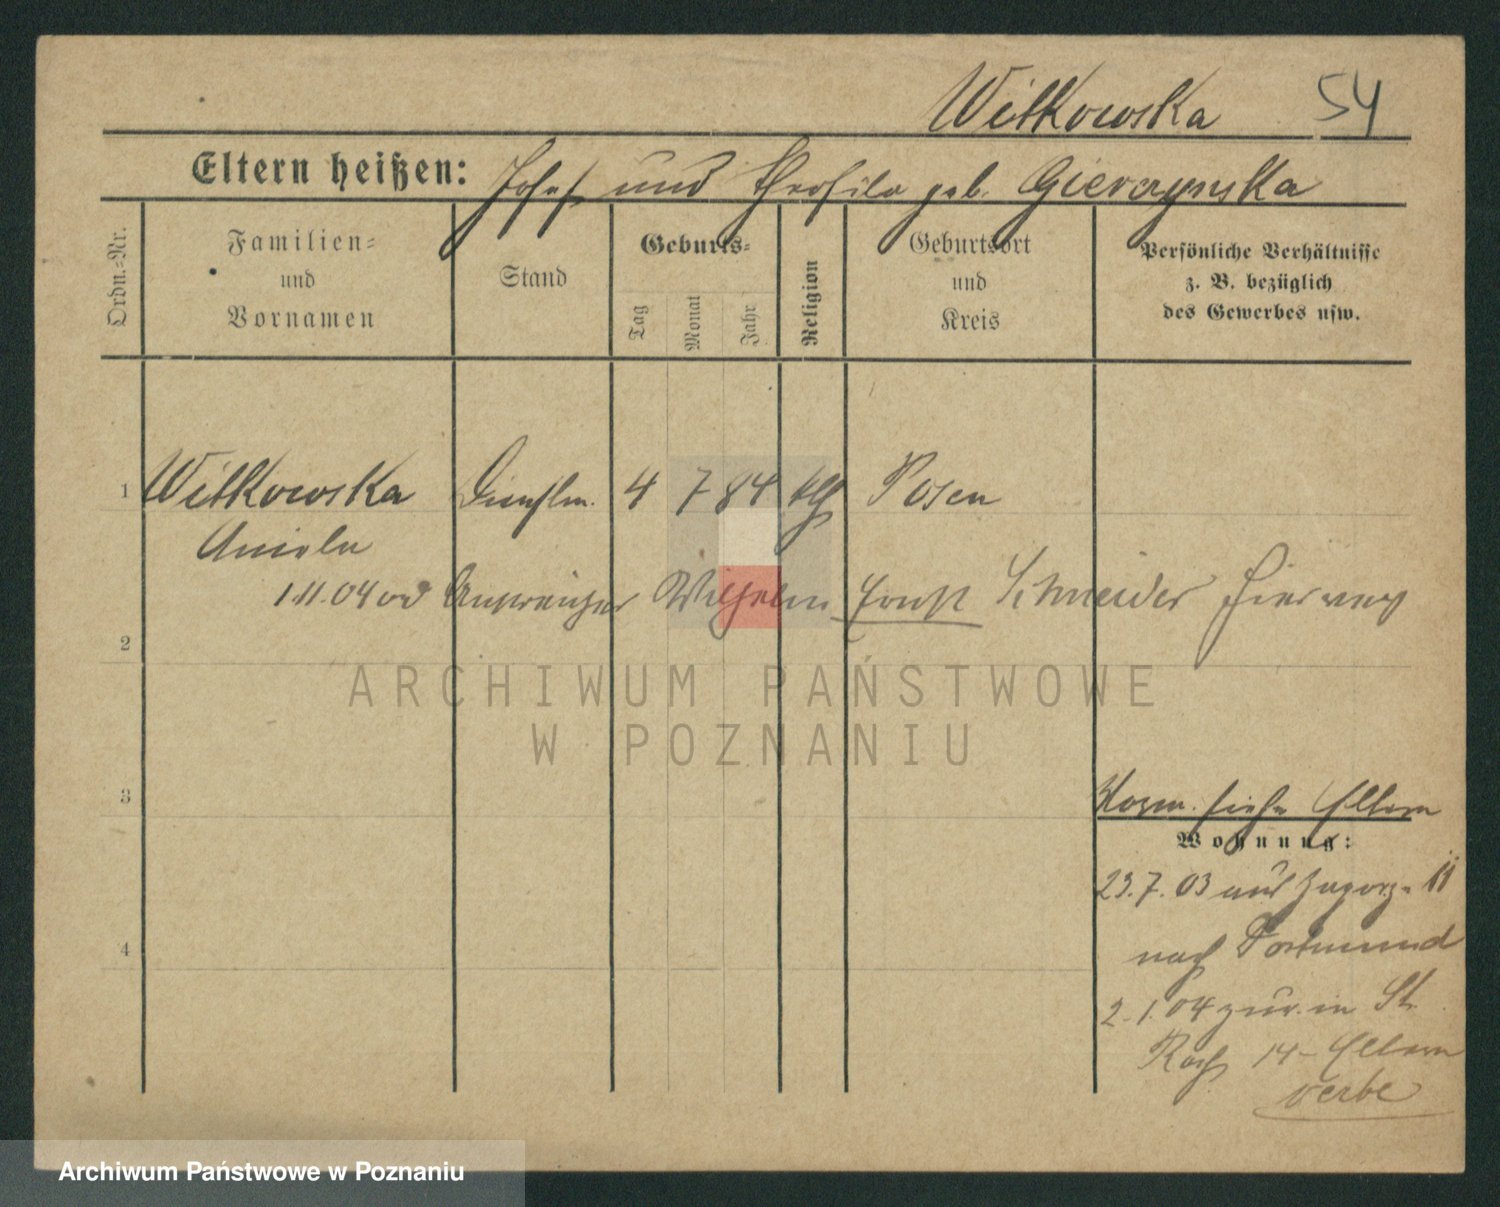 Witkowska 54
Eltern heißen: Josef und Theofila geb. Gierczynska
Ordn.-Nr.
Familien-
und
Vornamen
Stand
Geburts-
Tag
Monat
Jahr
Religion
Geburtsort
und
Kreis
Persönliche Verhältnisse
z. B. bezüglich
des Gewerbes usw.
1 Witkowska Dienstm. 4 7 84 kth Posen
Aniela
1.11.04 Wilhelm Ernst Schneider
2
ARCHIWUM PAŃSTWOWE
W POZNANIU
3
siehe Eltern
Wohnung:
23.7.03 aus
nach Dortmund
2.1.04 zur. in St.
Roch 14 - Eltern
4
Archiwum Państwowe w Poznaniu